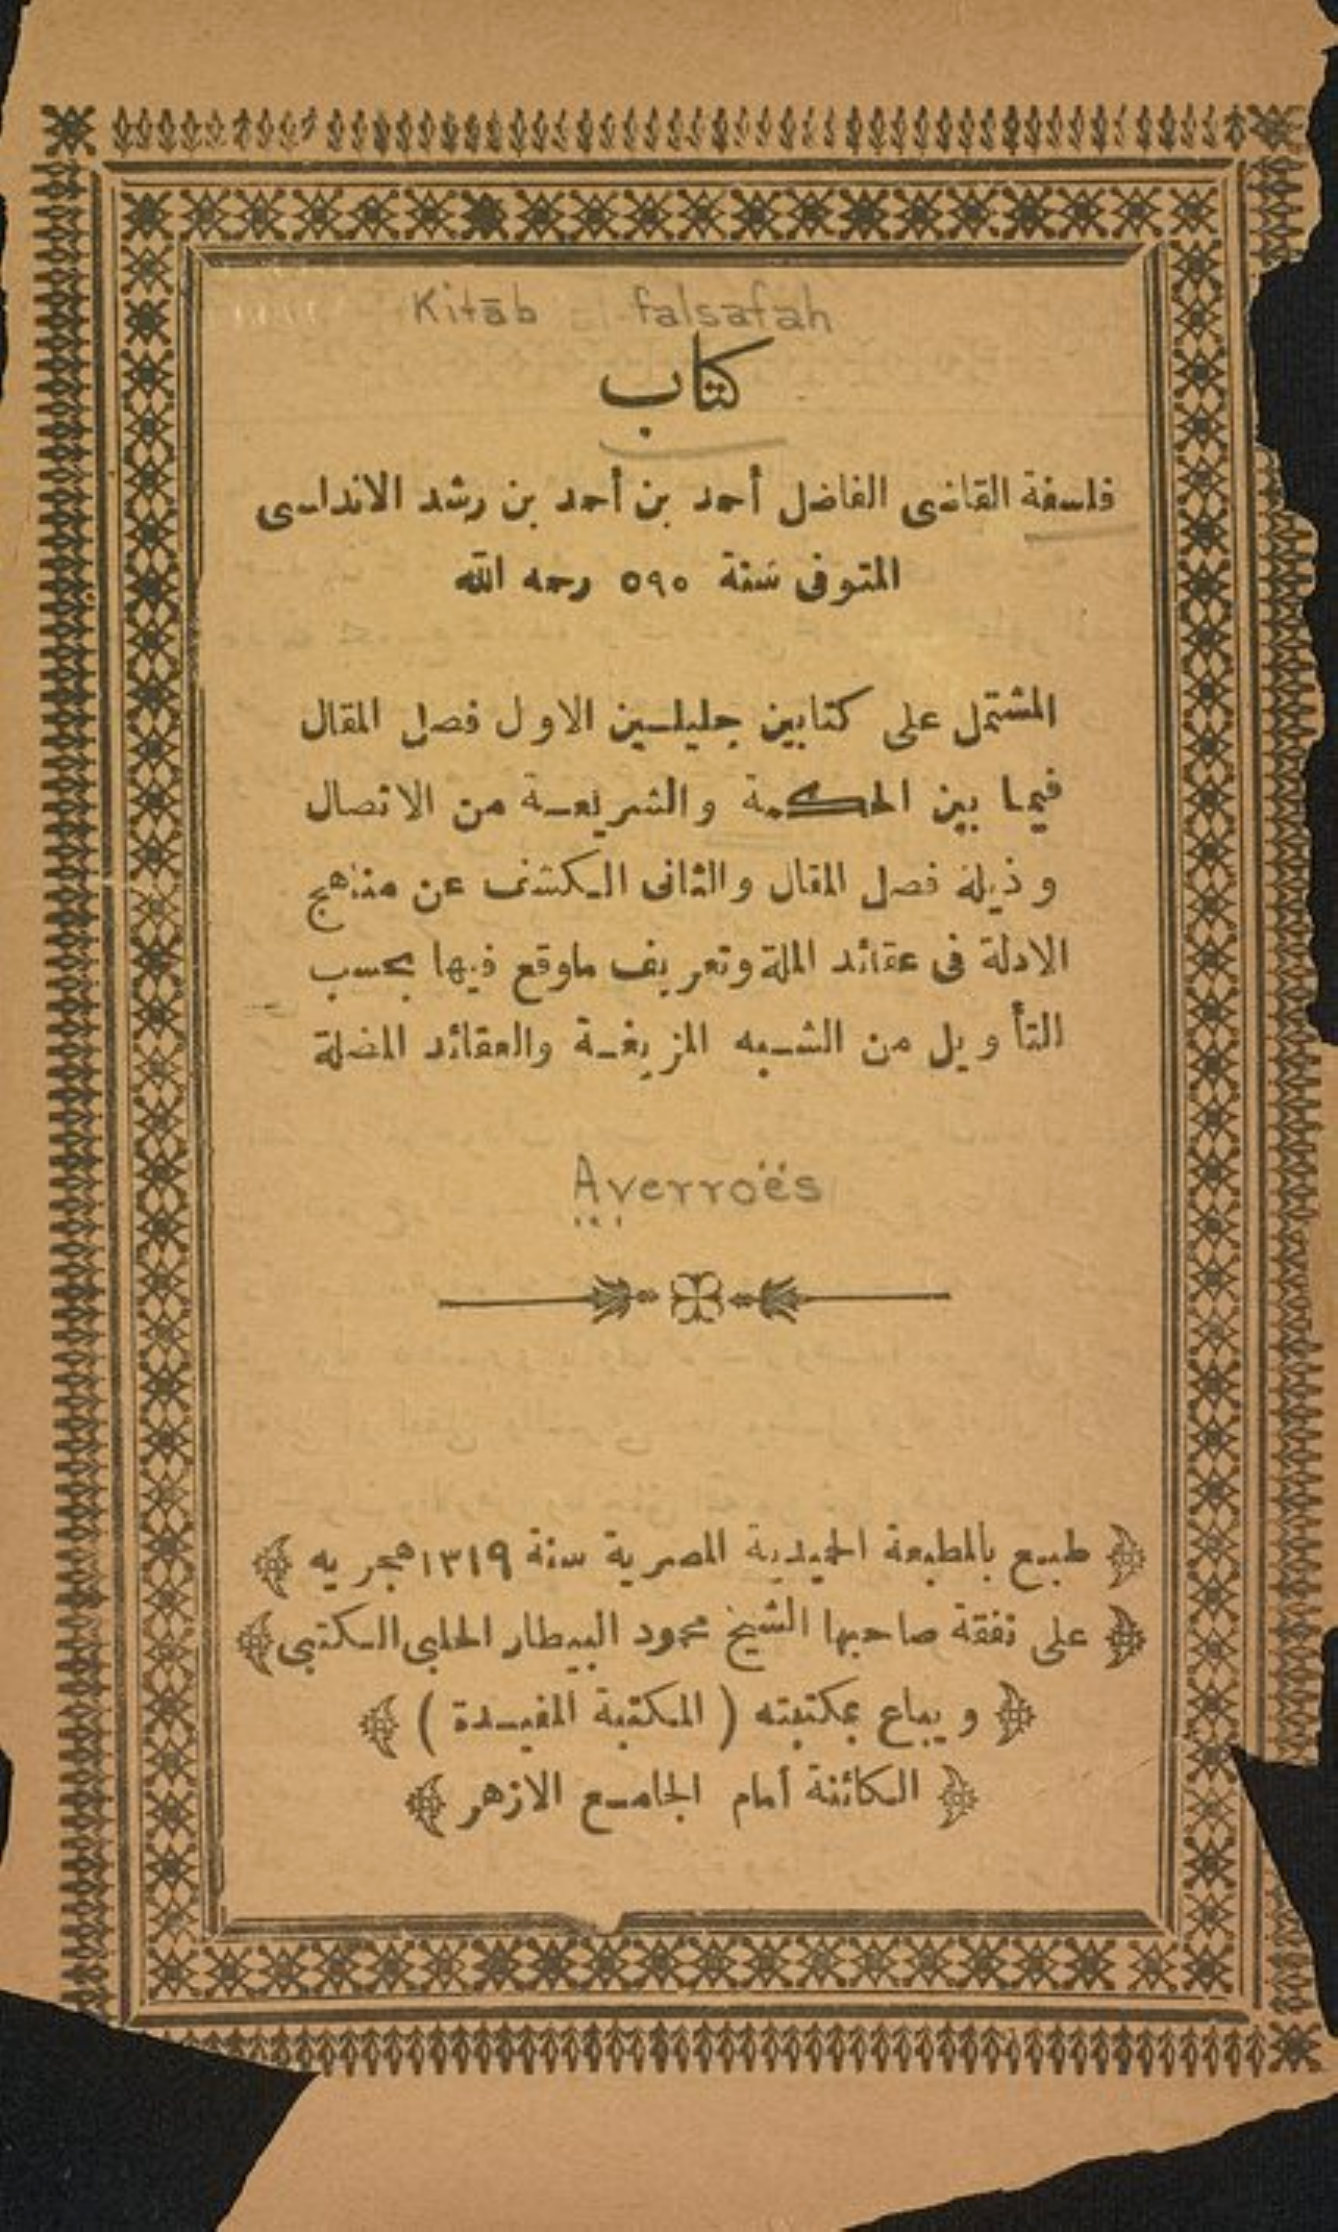 Kitāb al-falsafah
كتاب
فلسفة القاضى الفاضل أحمد بن أحمد بن رشد الاندلسى
المتوفى سنة ٥٩٥ رحمه الله
المشتمل على كتابين جليلين الاول فصل المقال
فيما بين الحكمة والشريعة من الاتصال
وذيله فصل المقال والثانى الكشف عن مناهج
الادلة فى عقائد الملة وتعريف ماوقع فيها بحسب
التأويل من الشبه المزيغة والعقائد المضلة
Averroës
طبع بالمطبعة الحميدية المصرية سنة ١٣١٩ هجريه
على نفقة صاحبها الشيخ محمود البيطار الحلبى الكتبى
ويباع بمكتبته ( المكتبة المفيدة )
الكائنة أمام الجامع الازهر